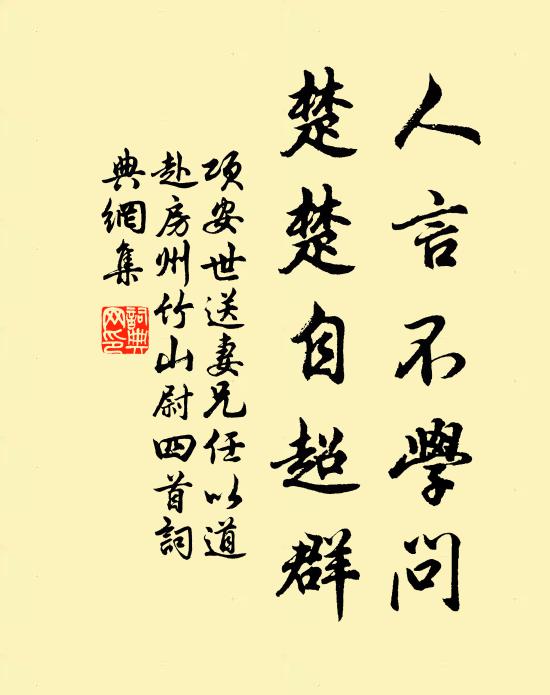 人言不學問
楚楚自超群
項安世送妻兄任以道
赴房州竹山尉四首詞
典網集
詞典
网印